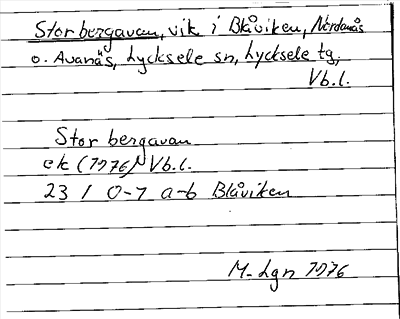 Storbergavan, vik i Blåviken, Nordanås
o. Avanäs, Lycksele sn, Lycksele tg,
Vb.l.
Storbergavan
ek (1976) Vb.l.
23 I 0-1 a-b Blåviken
M-Lgn 1976